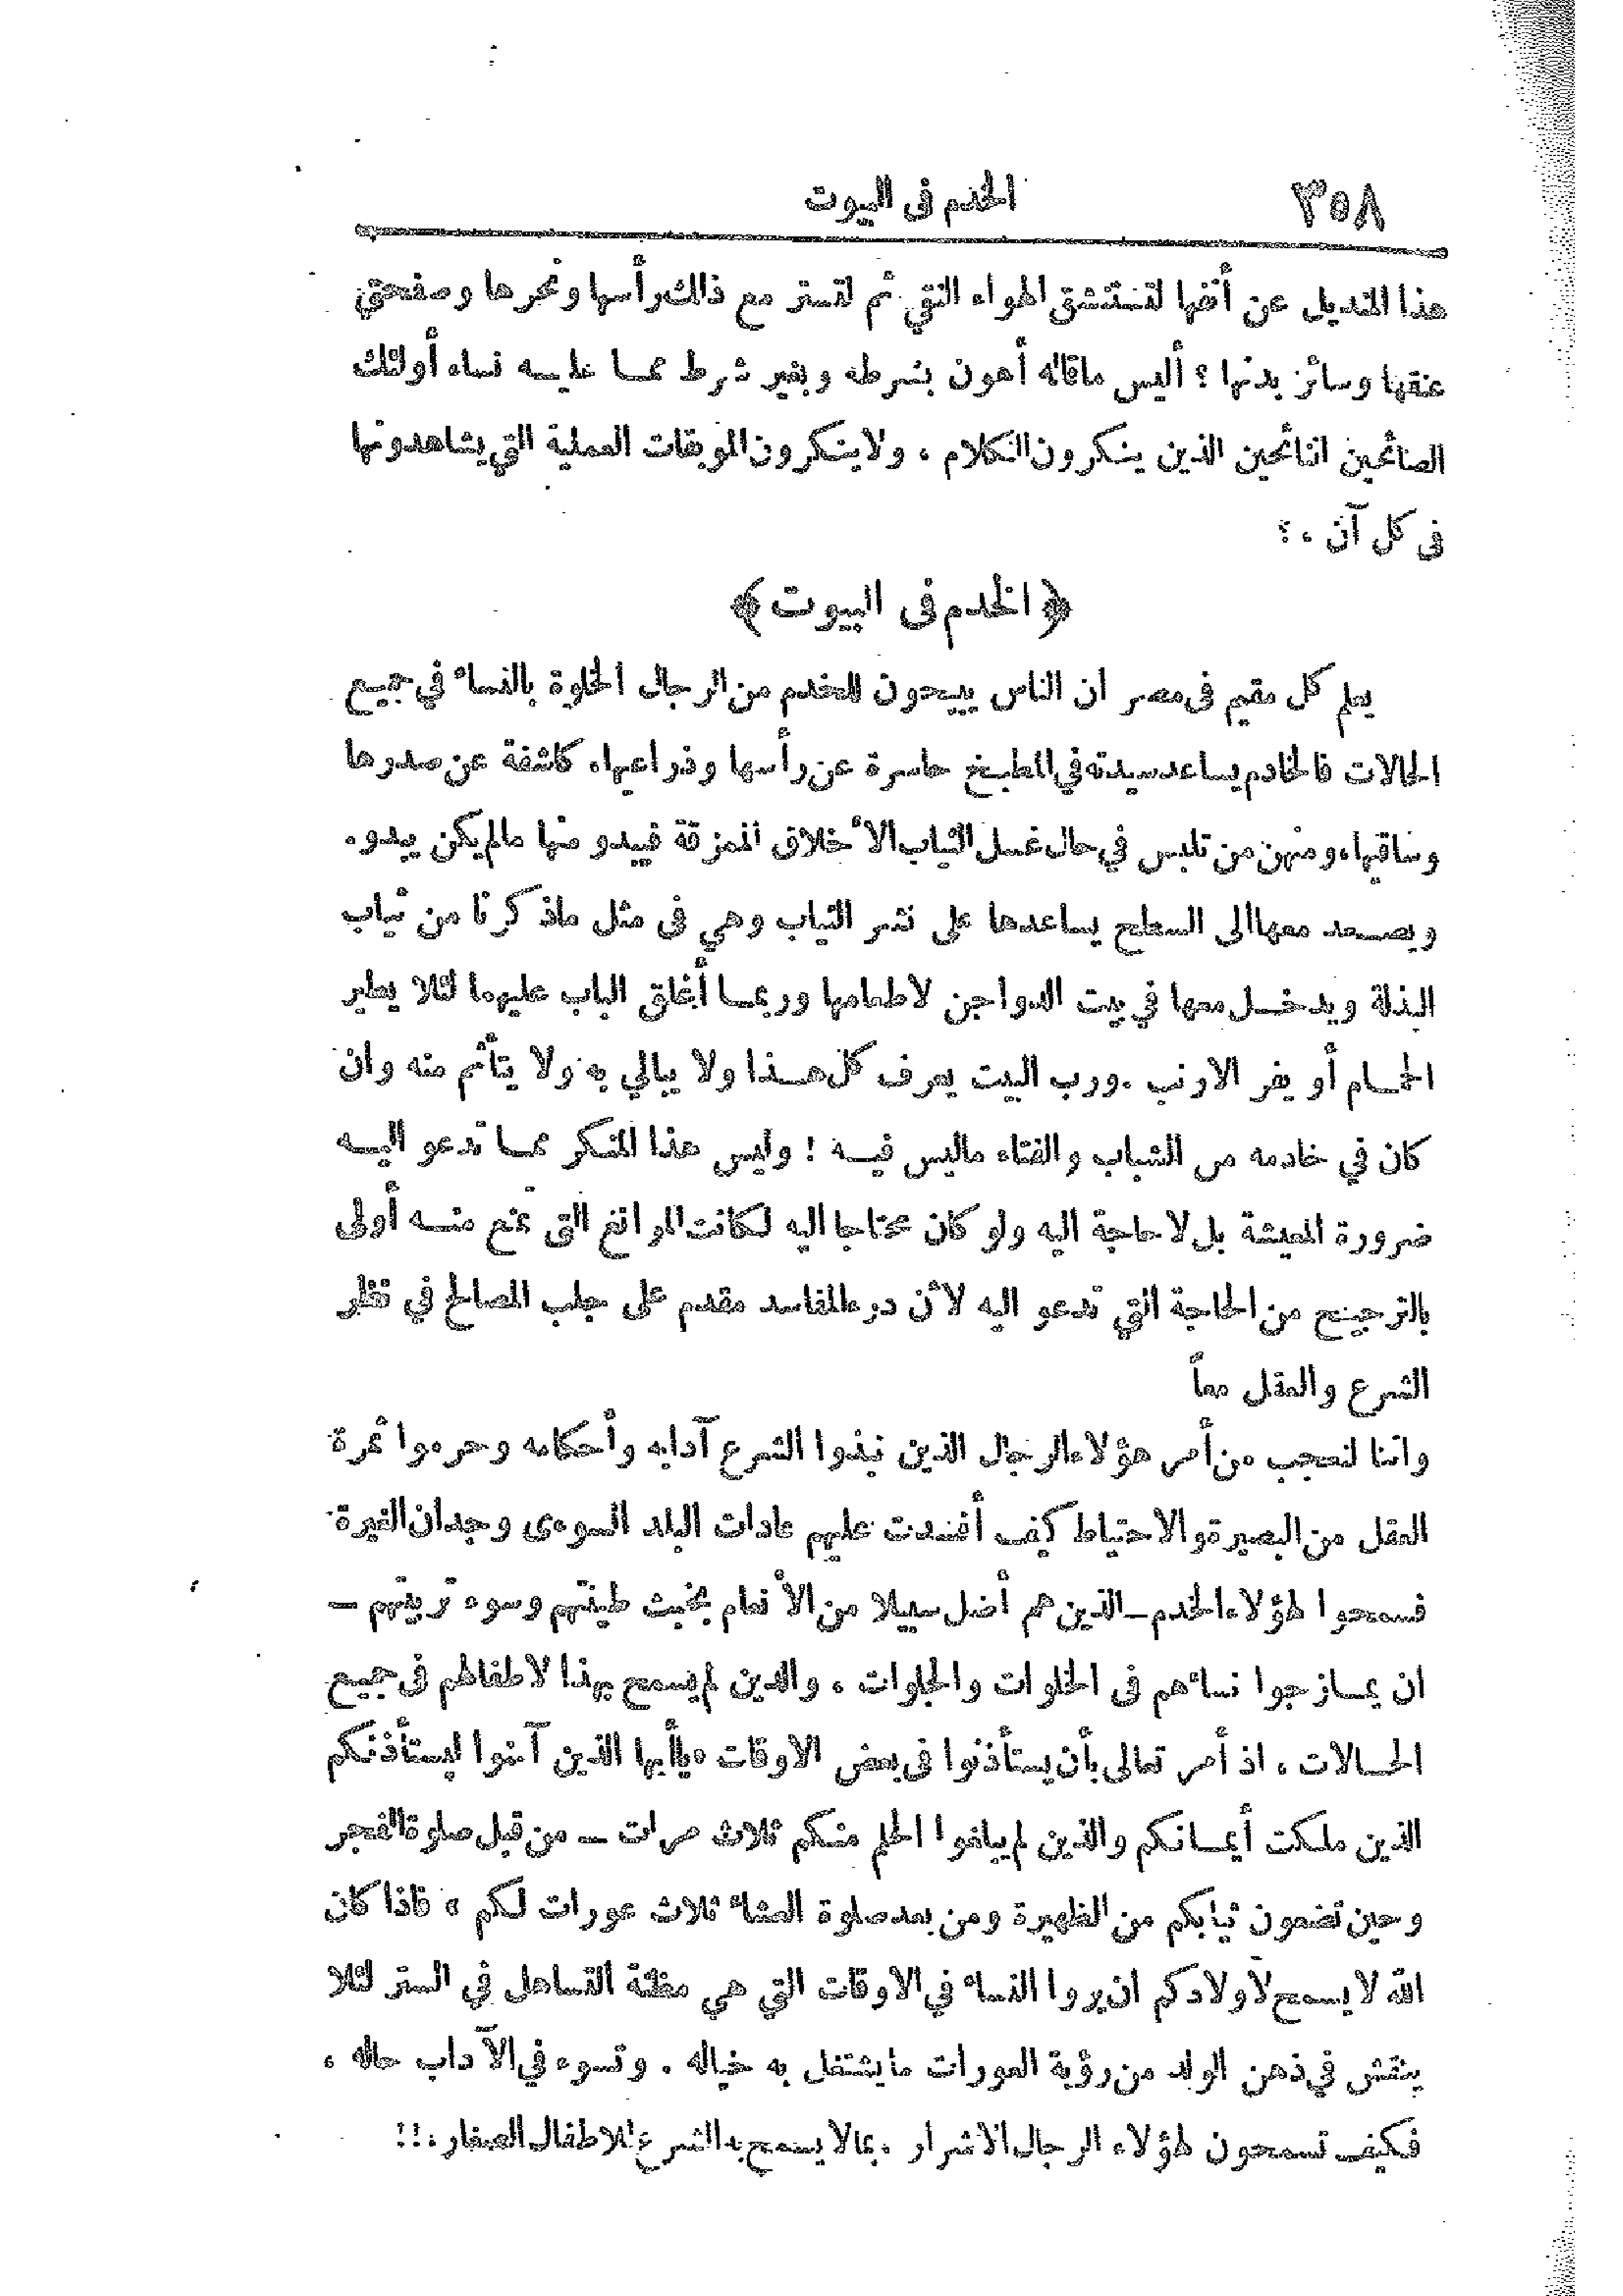 ٣٥٨ الخدم فى البيوت
هذا المنديل عن أنفها لتستنشق الهواء النقي ثم لتستر مع ذلك رأسها ونحرها وصفحتي
عنقها وسائر بدنها ؟ أليس ماقاله أهون بشرطه وبغير شرط مما عليه نساء أولئك
الصائحين النائحين الذين ينكرون الكلام ، ولا ينكرون الموبقات العملية التي يشاهدونها
فى كل آن ، ؟
﴿ الخدم فى البيوت ﴾
يعلم كل مقيم فى مصر ان الناس يبيحون للخدم من الرجال الخلوة بالنساء في جميع
الحالات فالخادم يساعد سيدته في المطبخ حاسرة عن رأسها وذراعيها، كاشفة عن صدرها
وساقيها، ومنهن من تلبس في حال غسل الثياب الأخلاق الممزقة فيبدو منها مالم يكن يبدو.
ويصعد معها الى السطح يساعدها على نشر الثياب وهي فى مثل ماذكرنا من ثياب
البذلة ويدخل معها في بيت الدواجن لاطعامها وربما أغلق الباب عليهما لئلا يطير
الحمام أو يفر الارنب . ورب البيت يعرف كل هذا ولا يبالي به ولا يتأثم منه وان
كان في خادمه من الشباب والفتاء ماليس فيه ! وليس هذا المنكر مما تدعو اليه
ضرورة المعيشة بل لا حاجة اليه ولو كان محتاجا اليه لكانت الموانع التى تمنع منه أولى
بالترجيح من الحاجة التي تدعو اليه لأن درء المفاسد مقدم على جلب المصالح في نظر
الشرع والعقل معاً
واننا لنعجب من أمر هؤلاء الرجال الذين نبذوا الشرع آدابه وأحكامه وحرموا ثمرة
العقل من البصيرة والاحتياط كيف أفسدت عليهم عادات البلد السوءى وجدان الغيرة
فسمحوا لهؤلاء الخدم ــ الذين هم أضل سبيلا من الأنعام بخبث طينتهم وسوء تربيتهم ــ
ان يمازجوا نساءهم فى الخلوات والجلوات ، والدين لم يسمح بهذا لاطفالهم فى جميع
الحالات ، اذ أمر تعالى بأن يستأذنوا فى بعض الاوقات « ياأيها الذين آمنوا ليستأذنكم
الذين ملكت أيمانكم والذين لم يبلغوا الحلم منكم ثلاث مرات ــ من قبل صلوة الفجر
وحين تضعون ثيابكم من الظهيرة ومن بعد صلوة العشاء ثلاث عورات لكم » فاذا كان
الله لا يسمح لأولادكم ان يروا النساء في الاوقات التي هي مظنة التساهل في الستر لئلا
ينتقش في ذهن الولد من رؤية العورات ما يشتغل به خياله . وتسوء في الآداب حاله ،
فكيف تسمحون لهؤلاء الرجال الاشرار ، بمالا يسمح به الشرع للاطفال الصغار ، ! !